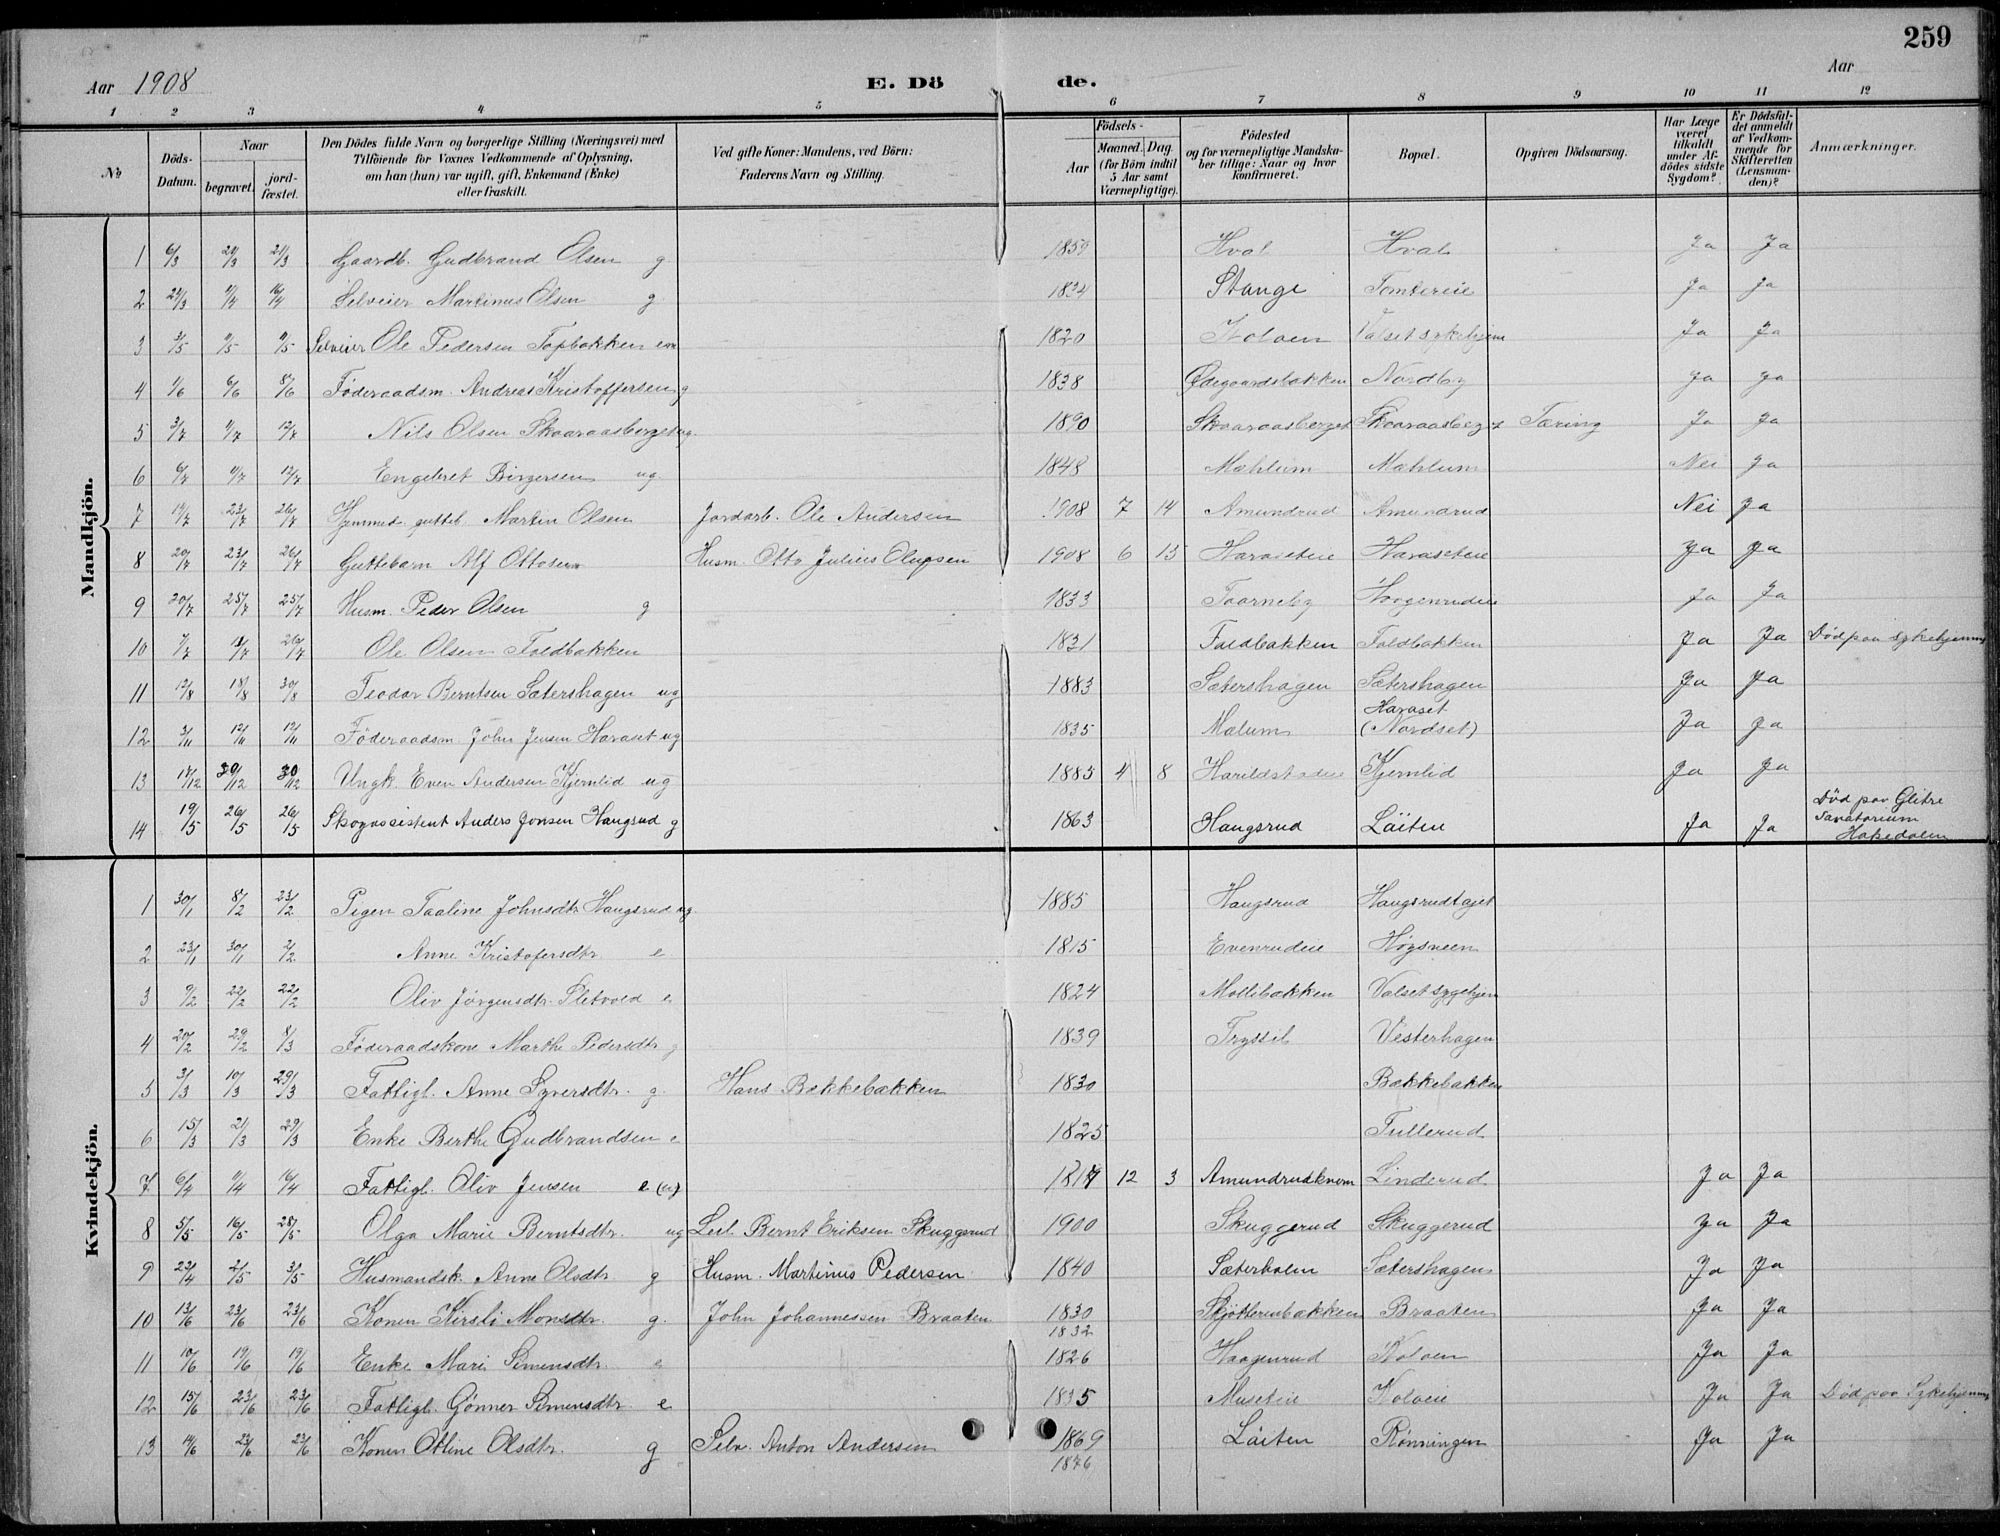 259
Aar 1908 E. Dö de. Aar
1 2 3 4 5 6 7 8 9 10 11 12
No
Döds-Datum.
Naar
begravet.
jordfæstet.
Den Dödes fulde Navn og borgerlige Stilling (Næringsvei) med
Tilföiende for Voxnes Vedkommende af Oplysning,
om han (hun) var ugift, gift, Enkemand (Enke)
eller fraskilt.
Ved gifte Koner: Mandens, ved Börn:
Faderens Navn og Stilling.
Födsels-
Aar
Maaned. Dag.
(for Börn indtil
5 Aar samt
Værnepligtige).
Födested
og for værnepligtige Mandska-
ber tillige: Naar og hvor
konfirmeret.
Bopæl.
Opgiven Dödsaarsag.
Har Læge
været
tilkaldt
under Af-
dödes sidste
Sygdom?
Er Dödsful-
det anmeldt
af Vedkom-
mende for
Skifteretten
(Lensman-
den)?
Anmærkninger.
Mandkjön.
1 6/3 21/3 21/3 Gaardb. Gudbrand Olsen g 1859 Hval Hval Ja Ja
2 24/3 11/4 16/4 Selveier Martinus Olsen g 1834 Stange Tomtereie Ja Ja
3 3/5 11/5 11/5 Selveier Ole Pedersen Topbakken em 1820 Kolven Valset sykehjem Ja Ja
4 1/6 6/6 8/6 Föderaadsm. Andreas Kristoffersen g 1838 Ødegaardsbakken Nordby Ja Ja
5 3/7 11/7 12/7 Nils Olsen Skaaraasberget ug. 1890 Skaaraasberget Skaaraasberget Tæring Ja Ja
6 6/7 11/7 12/7 Engebret Birgersen ug. 1848 Mæhlum Mæhlum Nei Ja
7 19/7 23/7 26/7 Hjemmed. gutteb. Martin Olsen Jordarb. Ole Andersen 1908 7 14 Amundrud Amundrud Nei Ja
8 20/7 23/7 26/7 Guttebarn Alf Ottosen Husm. Otto Julius Olufsen 1908 6 13 Haraseteie Haraseteie Ja Ja
9 20/7 25/7 25/7 Husm. Peder Olsen g 1833 Taarneby Haagenrudeie Ja Ja
10 7/7 11/7 26/7 Ole Olsen Foldbakken 1831 Foldbakken Foldbakken Ja Ja Död paa sykehjemmet
11 12/8 18/8 30/8 Teodor Berntsen Sætershagen ug 1883 Sætershagen Sætershagen Ja Ja
12 3/11 12/11 12/11 Föderaadsm. John Jensen Haraset ug 1835 Mælum Haraset (Nordset) Ja Ja
13 17/12 30/12 30/12 Ungk. Even Andersen Kjernlid ug 1885 4 8 Harildstadeie Kjernlid Ja Ja
14 19/5 26/5 26/5 Skogassistent Anders Jonsen Haugsrud g 1863 Haugsrud Löiten Ja Ja Död paa Glitre
Sanatorium
Hakedalen
Kvindekjön.
1 30/1 8/2 23/2 Pigen Taaline Johnsdtr Haugsrud ug. 1885 Haugsrud Haugsrudtajet
2 23/1 30/1 2/2 Anne Kristofersdtr. e 1815 Evenrudeie Högsveen
3 9/2 22/2 22/2 Oliv Jörgensdtr. Sletvold e 1824 Mollibakken Valset sygehjem
4 20/2 29/2 8/3 Föderaadskone Marthe Pedersdtr g 1839 Tryssil Vesterhagen
5 3/3 10/3 29/3 Fattigl. Anne Syversdtr. g. Hans Bakkebakken 1830 Bakkebakken
6 15/3 21/3 29/3 Enke Berthe Gudbrandsen e 1825 Fullerud
7. 6/4 11/4 16/4 Fattigl. Oliv Jensen e (ug) 1819 12 3 Amundrudknem Linderud Ja Ja
8 5/5 16/5 28/5 Olga Marie Berntsdtr. ug Leil. Bernt Eriksen Skuggerud 1900 Skuggerud Skuggerud Ja Ja
9 23/4 2/5 3/5 Husmandsk. Anne Olsdtr g Husm. Martinus Pedersen 1840 Sæterholm Sætershagen Ja Ja
10 13/6 23/6 23/6 Konen Kirsti Monsdtr. g. John Johannessen Braaten 1830 Skjötterudbakken Braaten Ja Ja
1832
11 10/6 19/6 19/6 Enke Mari Simensdtr. e 1826 Haagenrud Kolven Ja Ja
12 15/6 23/6 23/6 Fattigl. Gönner Simensdtr. e 1835 Museteie Kolveie Ja Ja Död paa Sykehjemmet
13 14/6 23/6 23/6 Konen Otline Olsdtr. g Selv. Anton Andersen 1869 Löiten Rönningen Ja Ja
1876